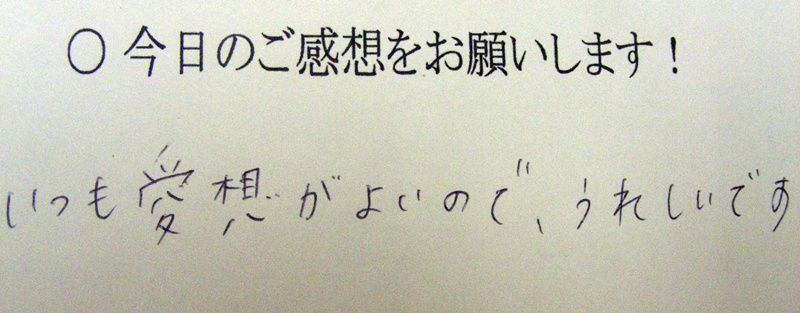 ○ 今日のご感想をお願いします!
いつも愛想がよいので、うれしいです